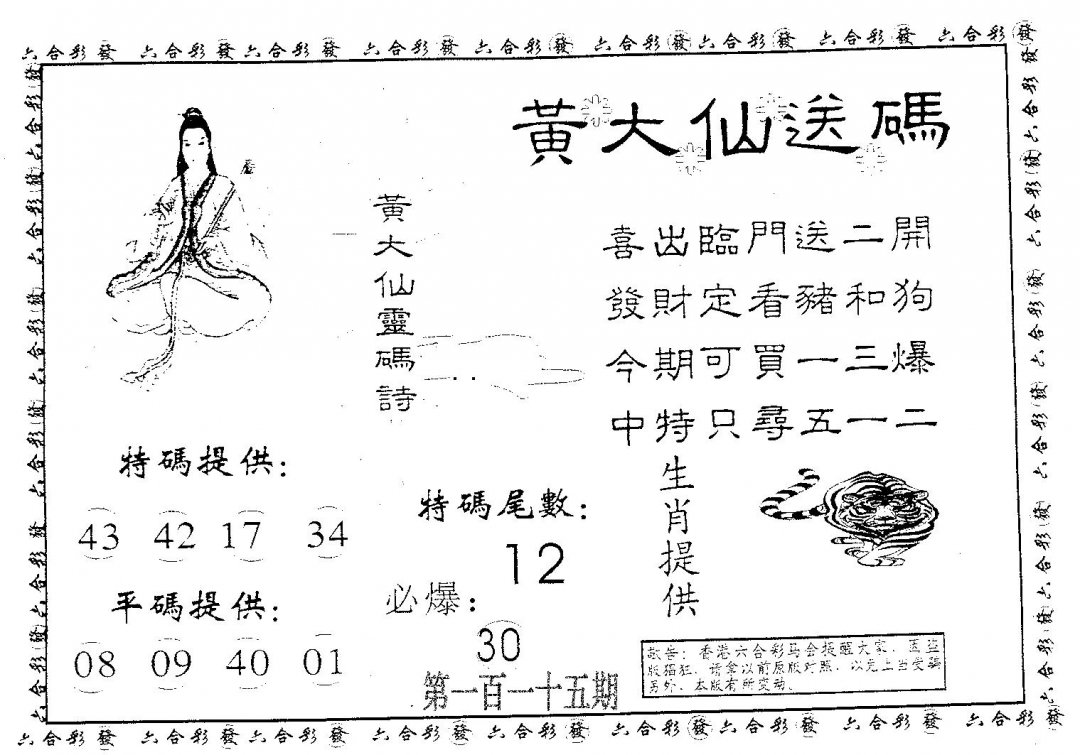 六合彩發 六合彩發六合彩發 六合彩發 六合彩發 六合彩發六合彩發 六合彩發 六合彩發
黃大仙送碼
黃大仙靈碼詩
喜出臨門送二開
發財定看豬和狗
今期可買一三爆
中特只尋五一二
特碼提供：
43 42 17 34
平碼提供：
08 09 40 01
特碼尾數：
12
必爆：
30
第一百一十五期
生肖提供
敬告：香港六合彩马会提醒大家，因盗
版猖狂，请拿以前原版对照，以免上当受骗
另外，本版有所变动。
六合彩發 六合彩發六合彩發 六合彩發 六合彩發 六合彩發六合彩發 六合彩發 六合彩發